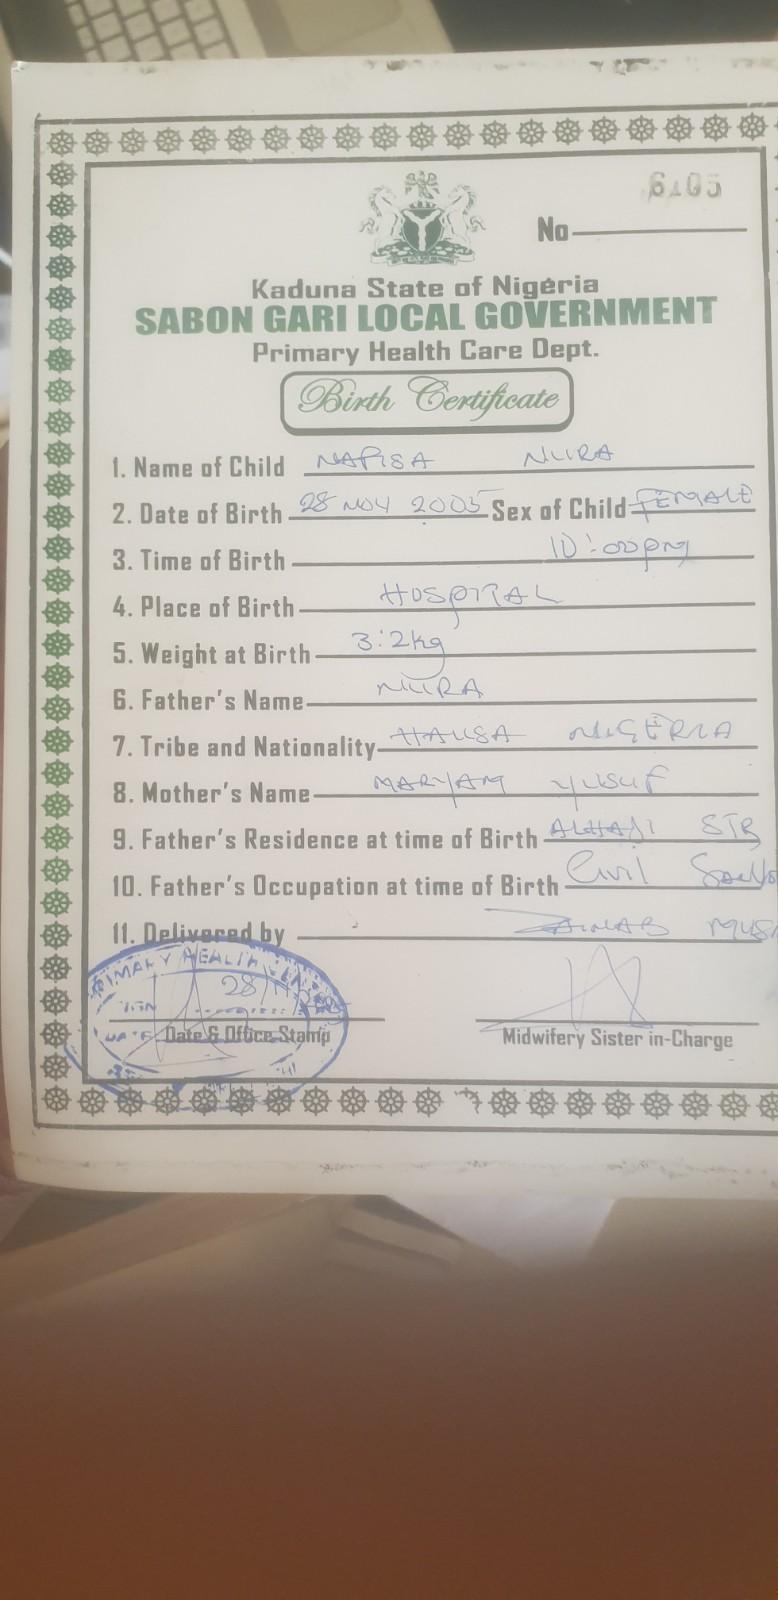 6105
No
Kaduna State of Nigeria
SABON GARI LOCAL GOVERNMENT
Primary Health Care Dept.
Birth Certificate
1. Name of Child NAFISA NURA
2. Date of Birth 28 NOV 2005 Sex of Child FEMALE
3. Time of Birth 10:00pm
4. Place of Birth HOSPITAL
5. Weight at Birth 3:2kg
6. Father's Name NURA
7. Tribe and Nationality HAUSA NIGERIA
8. Mother's Name MARYAM YUSUF
9. Father's Residence at time of Birth ALHAJI STR
10. Father's Occupation at time of Birth Civil
11. Delivered by ZAINAB MUSA
PRIMARY HEALTH
28
SIGN
DATE
Date & Office Stamp
Midwifery Sister in-Charge